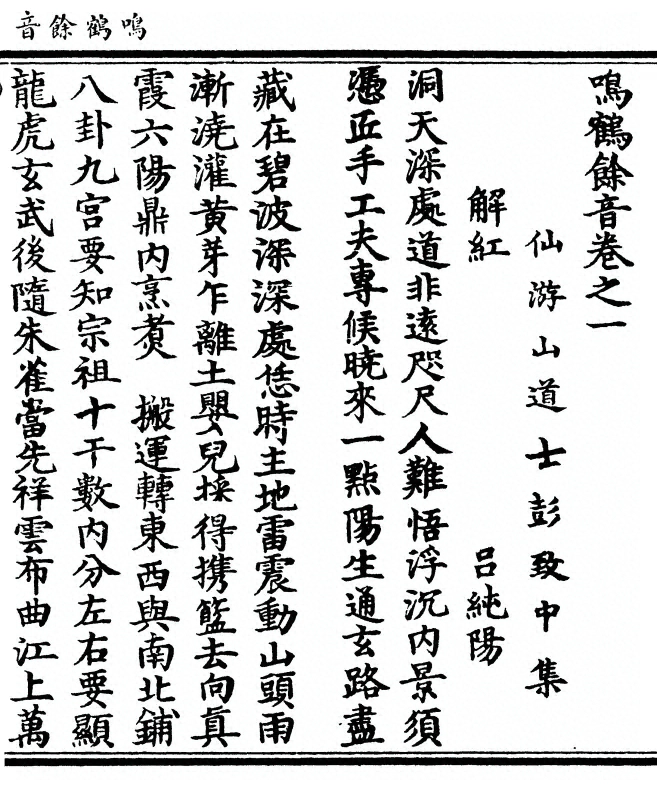 鳴鶴餘音
鳴鶴餘音卷之一
仙游山道士彭致中集
解紅　呂純陽
洞天深處道非遠咫尺人難悟浮沉內景須
憑匠手工夫專候曉來一點陽生通玄路盡
藏在碧波深深處恁時主地雷震動山頭雨
漸澆灌黃芽乍離土嬰兒採得携籃去向真
霞六陽鼎内烹煑　搬運轉東西與南北鋪
八卦九宮要知宗祖十干數内分左右要顯
龍虎玄武後隨朱雀當先祥雲布曲江上萬